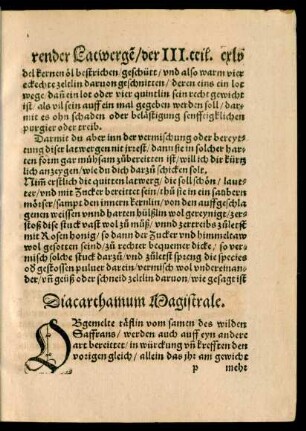 render Latwergē/der III. ttit. cxlv
del kernen öl bestrichen/geschütt/vnd also warm vier
eckechte zeltlin daruon geschnitten/deren eins ein lot
wege/dañ ein lot oder vier quintlin sein recht gewicht
ist/als vil sein auff ein mal gegeben werden soll/dar-
mit es ohn schaden oder belästigung senfftigklichen
purgier oder treib.
Darmit du aber inn der vermischung oder bereyt-
tung diser latwergen nit irrest/dann sie in solcher har-
ten form gar mühsam zůbereitten ist/will ich dir kürtz
lich anzeygen/wie du dich darzů schicken solt.
Nim erstlich die quitten latwerg/die soll schön/lau-
ter/vnd mit Zucker bereittet sein/thů sie in ein saubern
mörser/sampt den innern kernlin/von den auffgeschla
genen weissen vnnd harten hülßlin wol gereynigt/zer-
stoß dise stuck vast wol zů můß/vnnd zertreibs zůletst
mit Rosen honig/so dann der Zucker vnd himmeltaw
wol gesotten seind/zů rechter bequemer dicke/so ver-
misch solche stuck darzů/vnd zůletst spreng die species
od gestossen puluer darein/vermisch wol vndereinan-
der/vñ geüß oder schneid zeltlin daruon/wie gesagt ist
Diacarthamum Magistrale.
OBgemelte täflin vom samen des wilden
Saffrans/werden auch auff eyn andere
art bereittet/in würckung vñ krefften den
vorigen gleich/allein das jht am gewicht
p meht